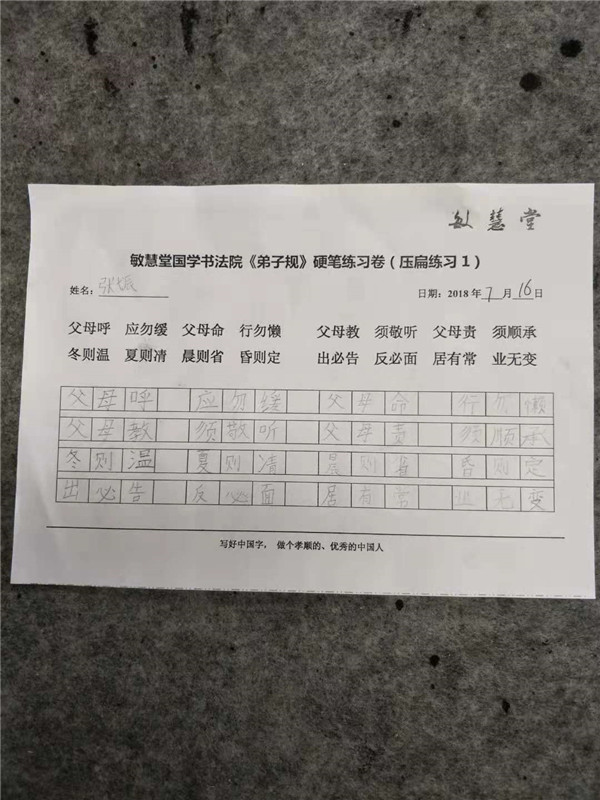 敏慧堂
敏慧堂国学书法院《弟子规》硬笔练习卷（压扁练习1）
姓名：张 日期：2018年7月16日
父母呼 应勿缓 父母命 行勿懒 父母教 须敬听 父母责 须顺承
冬则温 夏则凊 晨则省 昏则定 出必告 反必面 居有常 业无变
父母呼 应勿缓 父母命 行勿懒
父母教 须敬听 父母责 须顺承
冬则温 夏则清 晨则省 昏则定
出必告 反必面 居有常 业无变
写好中国字，做个孝顺的、优秀的中国人